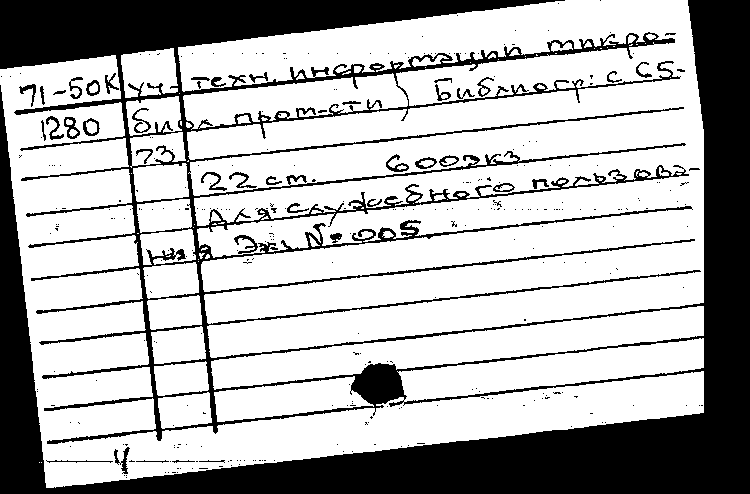 71-50К уч-техн. информации микро-
1280 биол. пром-сти) Библиогр: с 65-
73.
22 ст. 600экз
Для служебного пользова-
ния Экз № 005.
4